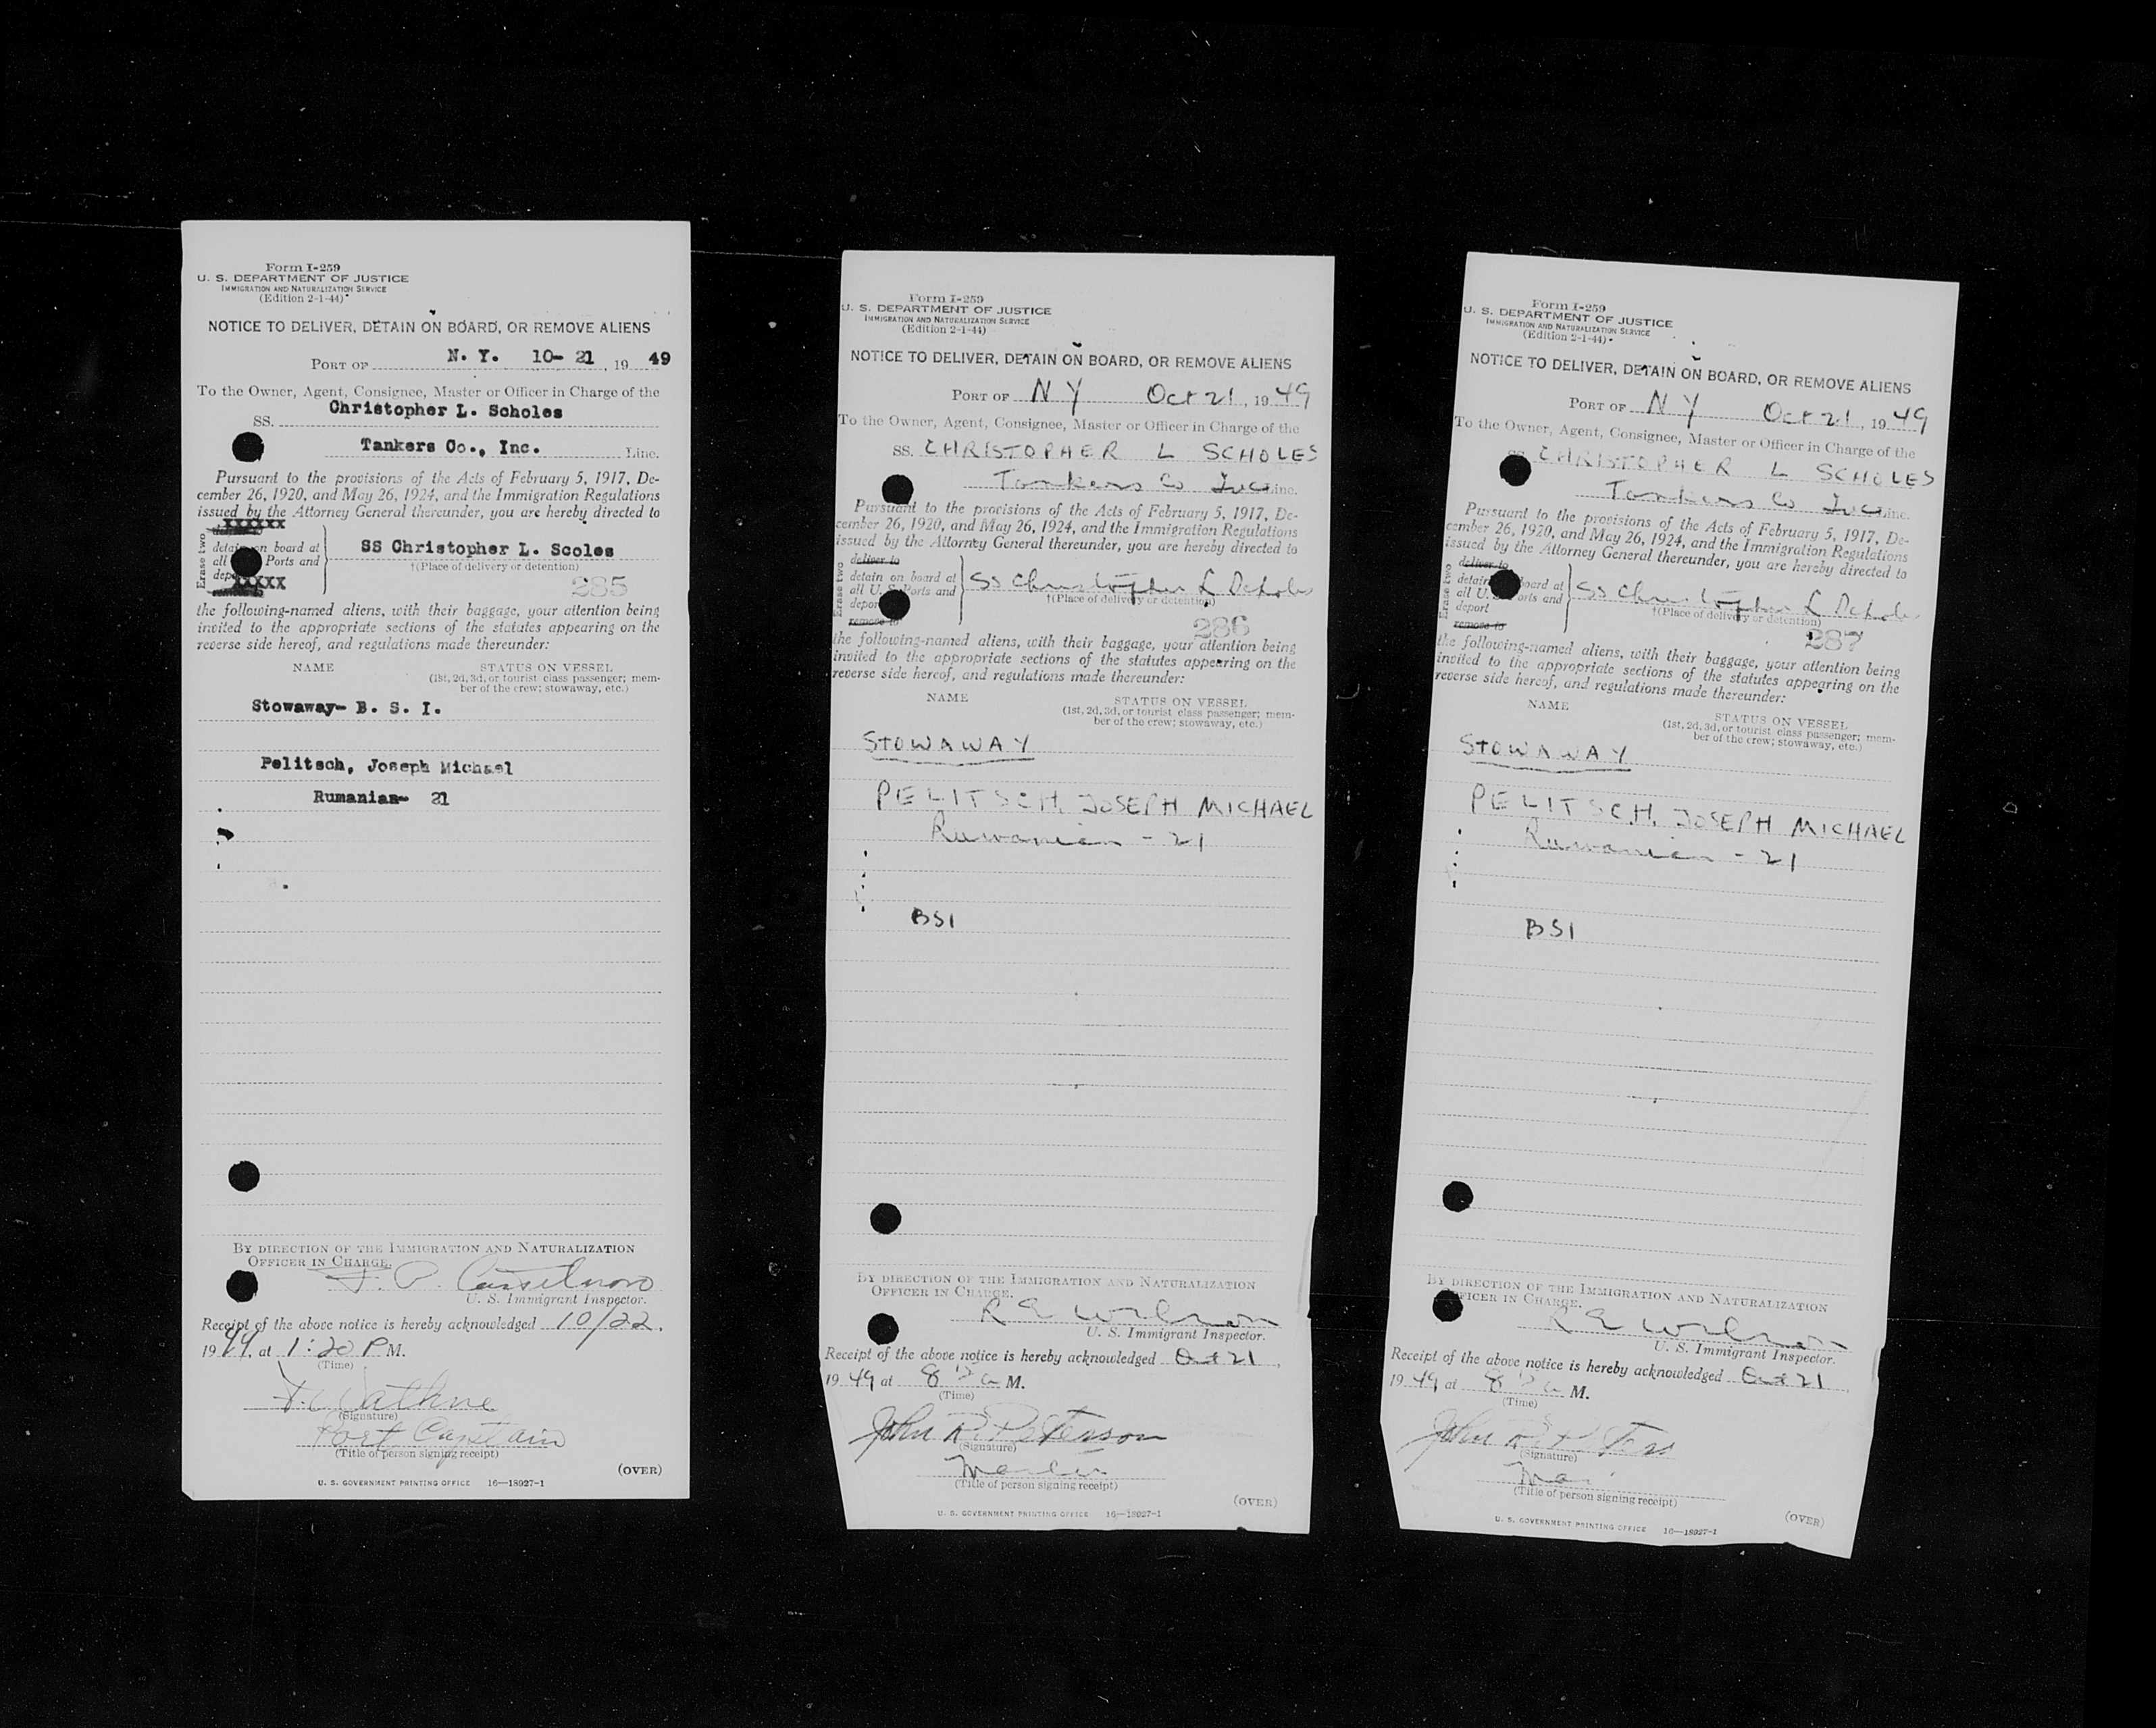 Form I-259
U. S. DEPARTMENT OF JUSTICE
IMMIGRATION AND NATURALIZATION SERVICE
(Edition 2-1-44)
NOTICE TO DELIVER, DETAIN ON BOARD, OR REMOVE ALIENS
PORT OF N. Y. 10- 21, 19 49
To the Owner, Agent, Consignee, Master or Officer in Charge of the
SS. Christopher L. Scholes
Tankers Co., Inc. Line.
Pursuant to the provisions of the Acts of February 5, 1917, De-
cember 26, 1920, and May 26, 1924, and the Immigration Regulations
issued by the Attorney General thereunder, you are hereby directed to
xxxxxx
Erase two
detain on board at
all Ports and
SS Christopher L. Scoles
†(Place of delivery or detention)
xxxxx
285
the following-named aliens, with their baggage, your attention being
invited to the appropriate sections of the statutes appearing on the
reverse side hereof, and regulations made thereunder:
NAME STATUS ON VESSEL
(1st, 2d, 3d, or tourist class passenger; mem-
ber of the crew; stowaway, etc.)
Stowaway- B. S. I.
Pelitsch, Joseph Michael
Rumanian- 21
BY DIRECTION OF THE IMMIGRATION AND NATURALIZATION
OFFICER IN CHARGE.
U. S. Immigrant Inspector.
Receipt of the above notice is hereby acknowledged 10/22,
1949, at 1:20 P M.
(Time)
(Signature)
Port Captain
(Title of person signing receipt)
(OVER)
U. S. GOVERNMENT PRINTING OFFICE 16—18927-1
Form I-259
U. S. DEPARTMENT OF JUSTICE
IMMIGRATION AND NATURALIZATION SERVICE
(Edition 2-1-44)
NOTICE TO DELIVER, DETAIN ON BOARD, OR REMOVE ALIENS
PORT OF N Y Oct 21, 19 49
To the Owner, Agent, Consignee, Master or Officer in Charge of the
SS. CHRISTOPHER L SCHOLES
Tankers Co Inc Line.
Pursuant to the provisions of the Acts of February 5, 1917, De-
cember 26, 1920, and May 26, 1924, and the Immigration Regulations
issued by the Attorney General thereunder, you are hereby directed to
Erase two
deliver to
detain on board at
all U. S. Ports and
deport
remove to
SS Christopher L Scholes
†(Place of delivery or detention)
286
the following-named aliens, with their baggage, your attention being
invited to the appropriate sections of the statutes appearing on the
reverse side hereof, and regulations made thereunder:
NAME STATUS ON VESSEL
(1st, 2d, 3d, or tourist class passenger; mem-
ber of the crew; stowaway, etc.)
STOWAWAY
PELITSCH, JOSEPH MICHAEL
Rumanian - 21
BSI
BY DIRECTION OF THE IMMIGRATION AND NATURALIZATION
OFFICER IN CHARGE.
R E Wilson
U. S. Immigrant Inspector.
Receipt of the above notice is hereby acknowledged Oct 21,
19 49 at 8 a M.
(Time)
John R. Peterson
(Signature)
Master
(Title of person signing receipt)
(OVER)
U. S. GOVERNMENT PRINTING OFFICE 16—18927-1
Form I-259
U. S. DEPARTMENT OF JUSTICE
IMMIGRATION AND NATURALIZATION SERVICE
(Edition 2-1-44)
NOTICE TO DELIVER, DETAIN ON BOARD, OR REMOVE ALIENS
PORT OF N Y Oct 21, 19 49
To the Owner, Agent, Consignee, Master or Officer in Charge of the
SS CHRISTOPHER L SCHOLES
Tankers Co Inc Line.
Pursuant to the provisions of the Acts of February 5, 1917, De-
cember 26, 1920, and May 26, 1924, and the Immigration Regulations
issued by the Attorney General thereunder, you are hereby directed to
Erase two
deliver to
detain board at
all U. Ports and
deport
remove to
SS Christopher L Schole
†(Place of delivery or detention)
287
the following-named aliens, with their baggage, your attention being
invited to the appropriate sections of the statutes appearing on the
reverse side hereof, and regulations made thereunder:
NAME STATUS ON VESSEL
(1st, 2d, 3d, or tourist class passenger; mem-
ber of the crew; stowaway, etc.)
STOWAWAY
PELITSCH, JOSEPH MICHAEL
Rumanian - 21
BSI
BY DIRECTION OF THE IMMIGRATION AND NATURALIZATION
OFFICER IN CHARGE.
R E Wilson
U. S. Immigrant Inspector.
Receipt of the above notice is hereby acknowledged Oct 21,
19 49 at 8 a M.
(Time)
John R.
(Signature)
(Title of person signing receipt)
(OVER)
U. S. GOVERNMENT PRINTING OFFICE 16—18927-1